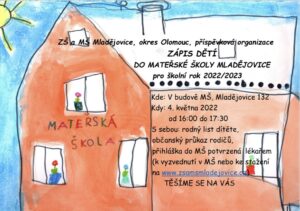 ZŠ a MŠ Mladějovice, okres Olomouc, příspěvková organizace
ZÁPIS DĚTÍ
DO MATEŘSKÉ ŠKOLY MLADĚJOVICE
pro školní rok 2022/2023
Kde: V budově MŠ, Mladějovice 132
Kdy: 4. května 2022
od 16:00 do 17:30
S sebou: rodný list dítěte,
občanský průkaz rodičů,
přihláška do MŠ potvrzená lékařem
(k vyzvednutí v MŠ nebo ke stažení
na www.zsamsmladejovice.cz)
TĚŠÍME SE NA VÁS
MATEŘSKÁ
ŠKOLA